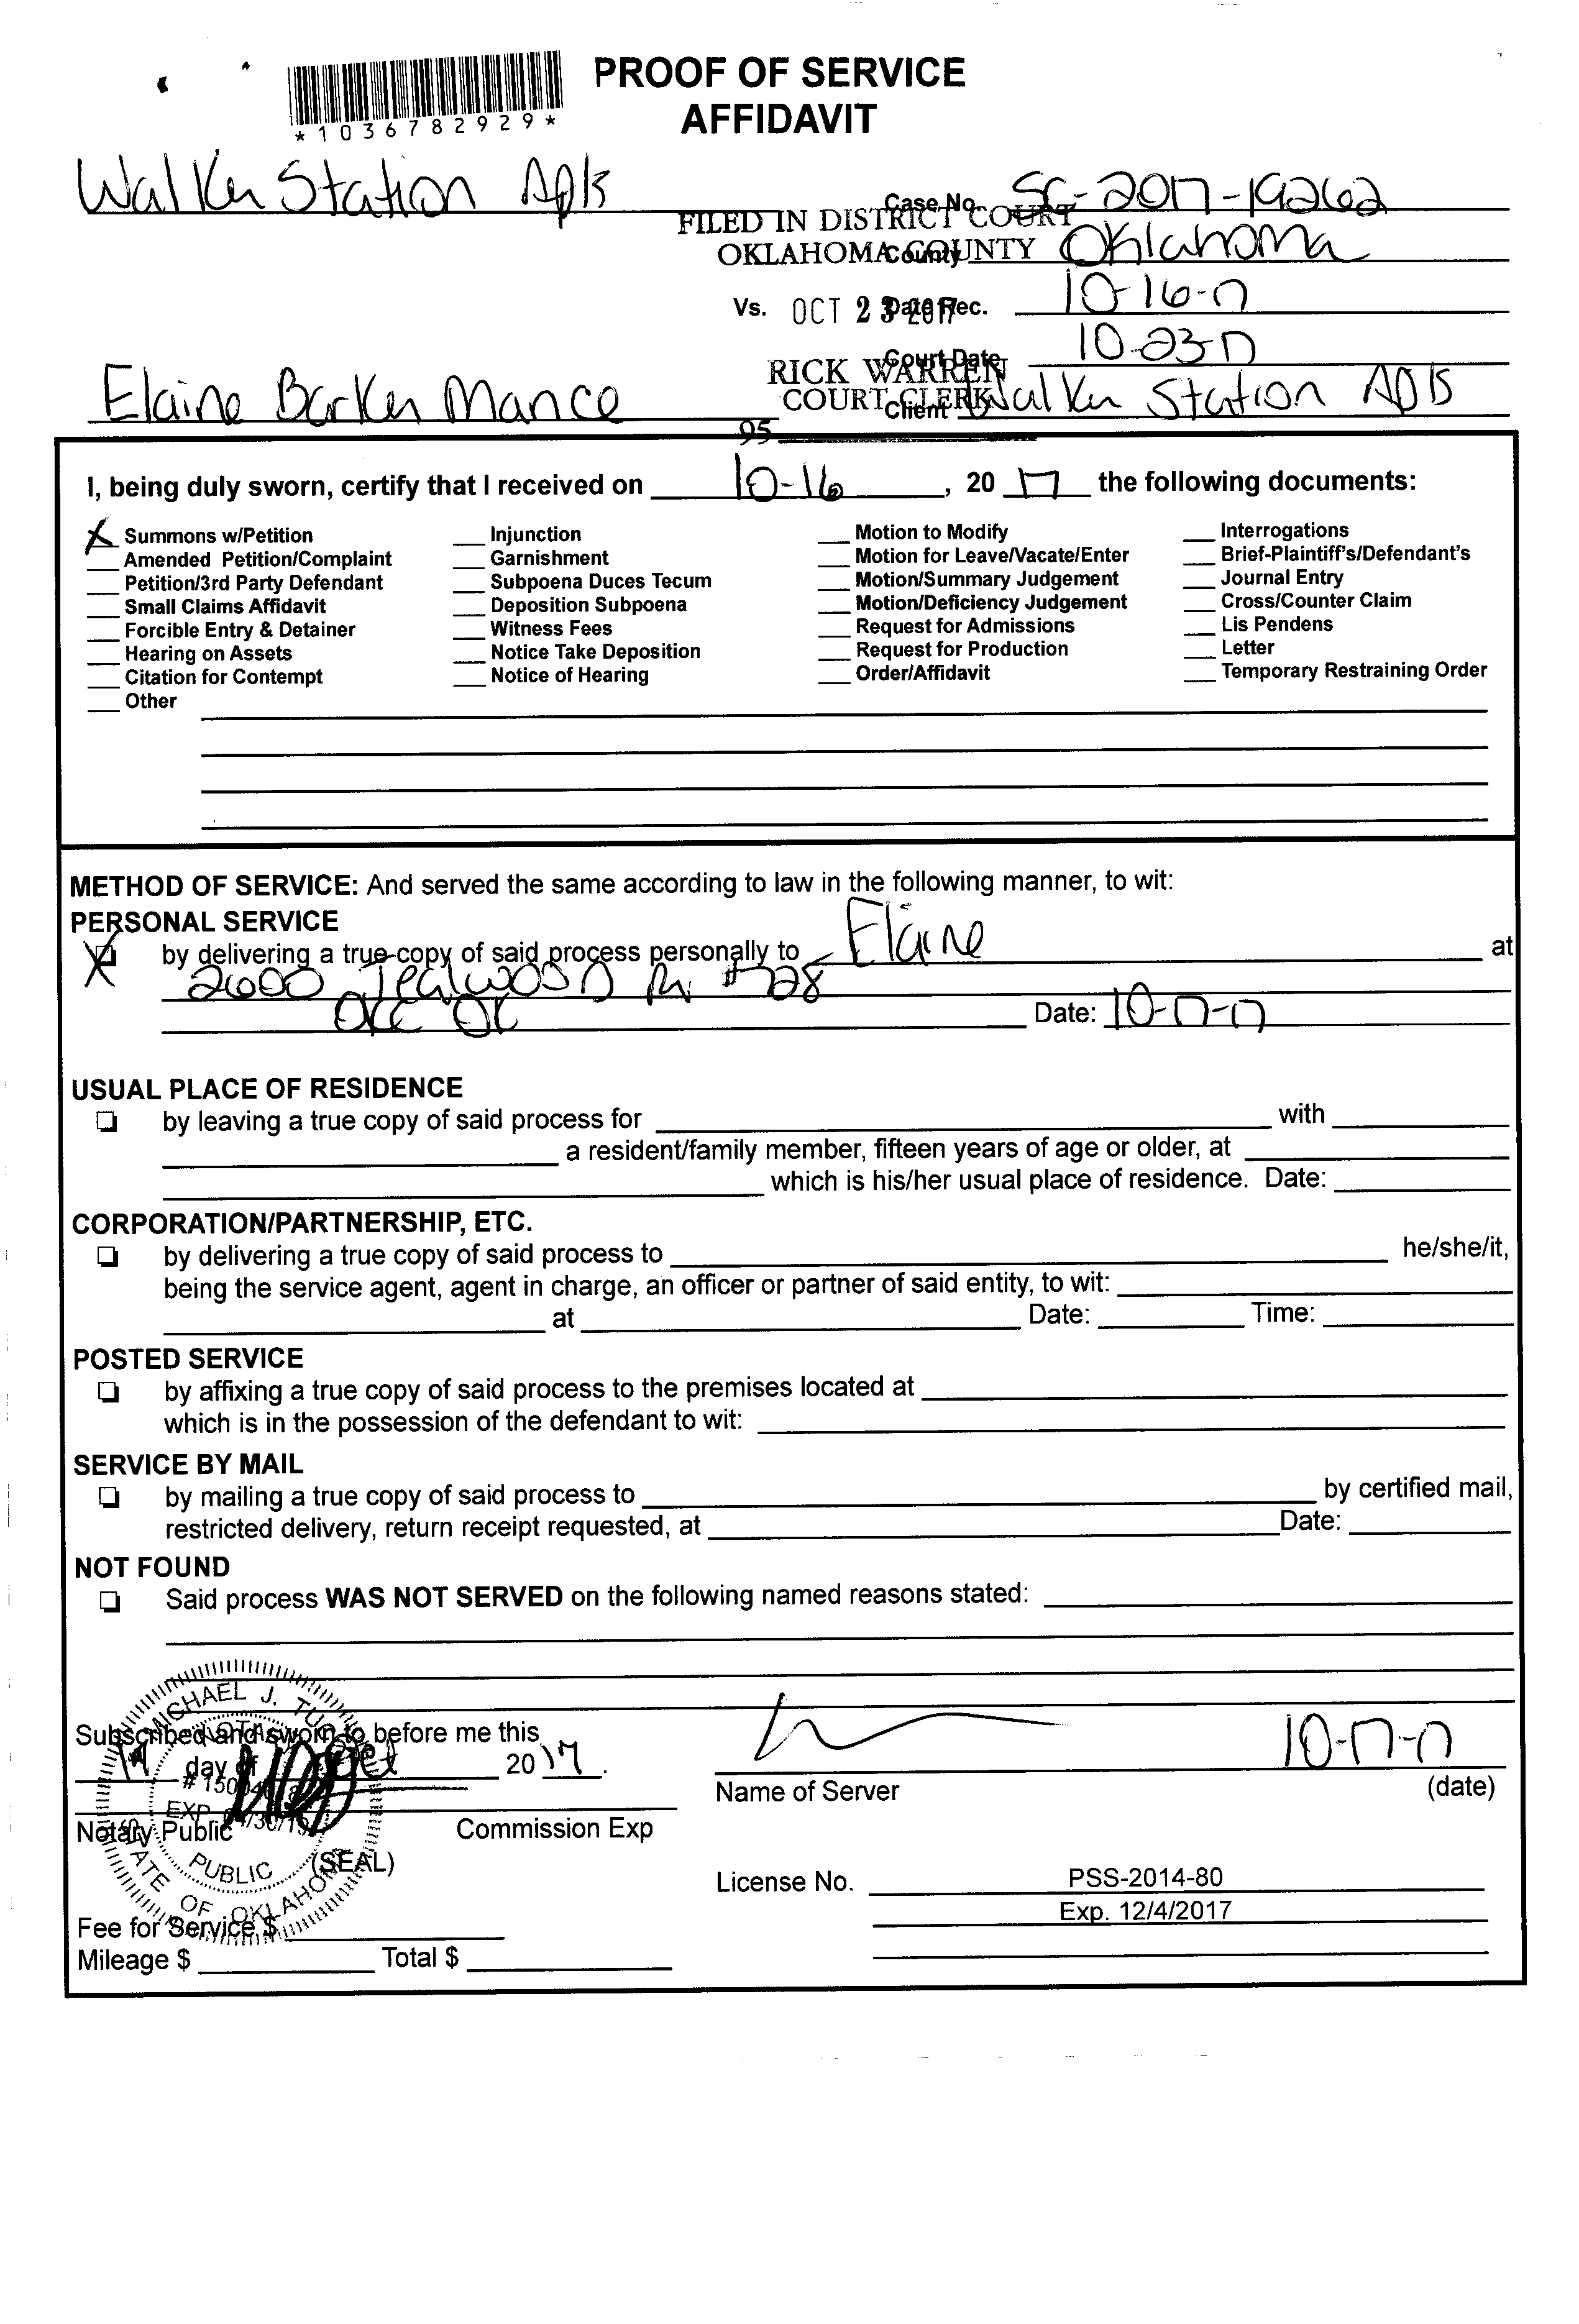 PROOF OF SERVICE
AFFIDAVIT
*1036782929*
Walker Station Apts
Case No. SC-2017-19262
FILED IN DISTRICT COURT
OKLAHOMA COUNTY
County Oklahoma
Vs.
OCT 23 2017
Date Rec. 10-16-17
Court Date 10-23-17
RICK WARREN
COURT CLERK
Elaine Barker Mance
Client Walker Station Apts
95
I, being duly sworn, certify that I received on 10-16, 20 17 the following documents:
X Summons w/Petition
Amended Petition/Complaint
Petition/3rd Party Defendant
Small Claims Affidavit
Forcible Entry & Detainer
Hearing on Assets
Citation for Contempt
Other
Injunction
Garnishment
Subpoena Duces Tecum
Deposition Subpoena
Witness Fees
Notice Take Deposition
Notice of Hearing
Motion to Modify
Motion for Leave/Vacate/Enter
Motion/Summary Judgement
Motion/Deficiency Judgement
Request for Admissions
Request for Production
Order/Affidavit
Interrogations
Brief-Plaintiff's/Defendant's
Journal Entry
Cross/Counter Claim
Lis Pendens
Letter
Temporary Restraining Order
METHOD OF SERVICE: And served the same according to law in the following manner, to wit:
PERSONAL SERVICE
X by delivering a true copy of said process personally to Elaine at
2600 Tealwood Dr #728
OKC OK Date: 10-17-17
USUAL PLACE OF RESIDENCE
by leaving a true copy of said process for with
a resident/family member, fifteen years of age or older, at
which is his/her usual place of residence. Date:
CORPORATION/PARTNERSHIP, ETC.
by delivering a true copy of said process to he/she/it,
being the service agent, agent in charge, an officer or partner of said entity, to wit:
at Date: Time:
POSTED SERVICE
by affixing a true copy of said process to the premises located at
which is in the possession of the defendant to wit:
SERVICE BY MAIL
by mailing a true copy of said process to by certified mail,
restricted delivery, return receipt requested, at Date:
NOT FOUND
Said process WAS NOT SERVED on the following named reasons stated:
Subscribed and sworn to before me this
day of 20 17.
10-17-17
Name of Server (date)
Notary Public Commission Exp
(SEAL)
MICHAEL J.
NOTARY
PUBLIC
STATE OF OKLAHOMA
License No. PSS-2014-80
Exp. 12/4/2017
Fee for Service $
Mileage $ Total $